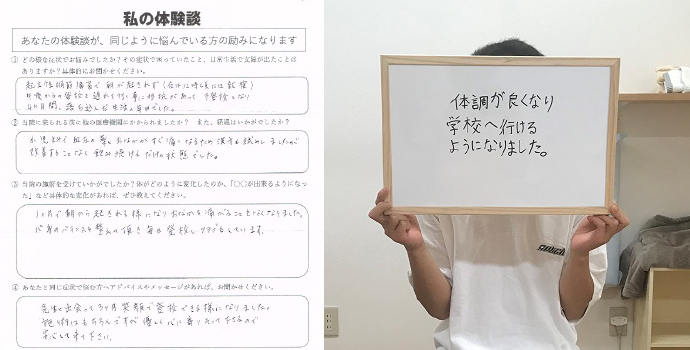 私の体験談
あなたの体験談が、同じように悩んでいる方の励みになります
① どの様な症状でお悩みでしたか?その症状で困っていたこと、日常生活で支障が出たことは
ありますか?具体的にお聞かせください。
起立性調節障害で朝が起きれず
② 当院に来られる前に他の医療機関にかかられましたか? また、経過はいかがでしたか?
改善することなく飲み続けるだけの状態でした。
③ 当院の施術を受けていかがでしたか?体がどのように変化したのか、「○○が出来るようになっ
た」など具体的な変化があれば、ぜひ教えてください。
1ヶ月で朝から起きれる様になりおなかを痛がることもなくなりました。
心身のバランスも整えて頂き毎日登校し
④ あなたと同じ症状で悩む方へアドバイスやメッセージがあれば、お聞かせください。
先生と出会って3ヶ月笑顔で登校できる様になりました。
施術はもちろんですが優しく心に寄りそって下さるので
安心して来て下さい。
体調が良くなり
学校へ行ける
ようになりました。